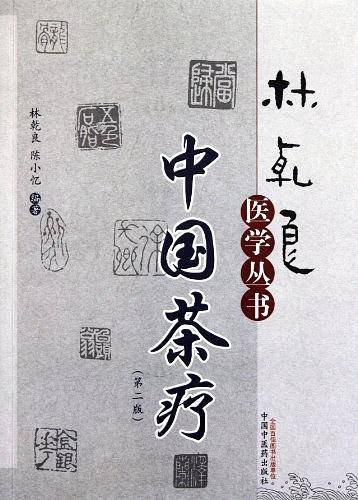 林乾良
医学丛书
中国茶疗
(第二版)
林乾良 陈小忆 编著
當歸
全国百佳图书出版单位
中国中医药出版社